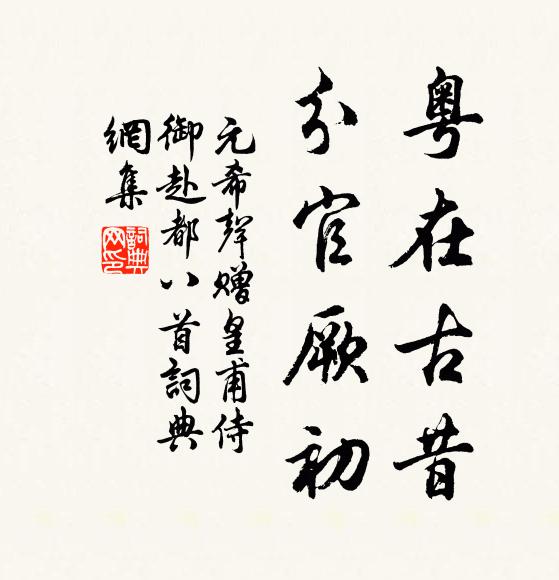 粤在古昔
分官厥初
元希聲贈皇甫侍
御赴都八首詞典
網集
詞典網印